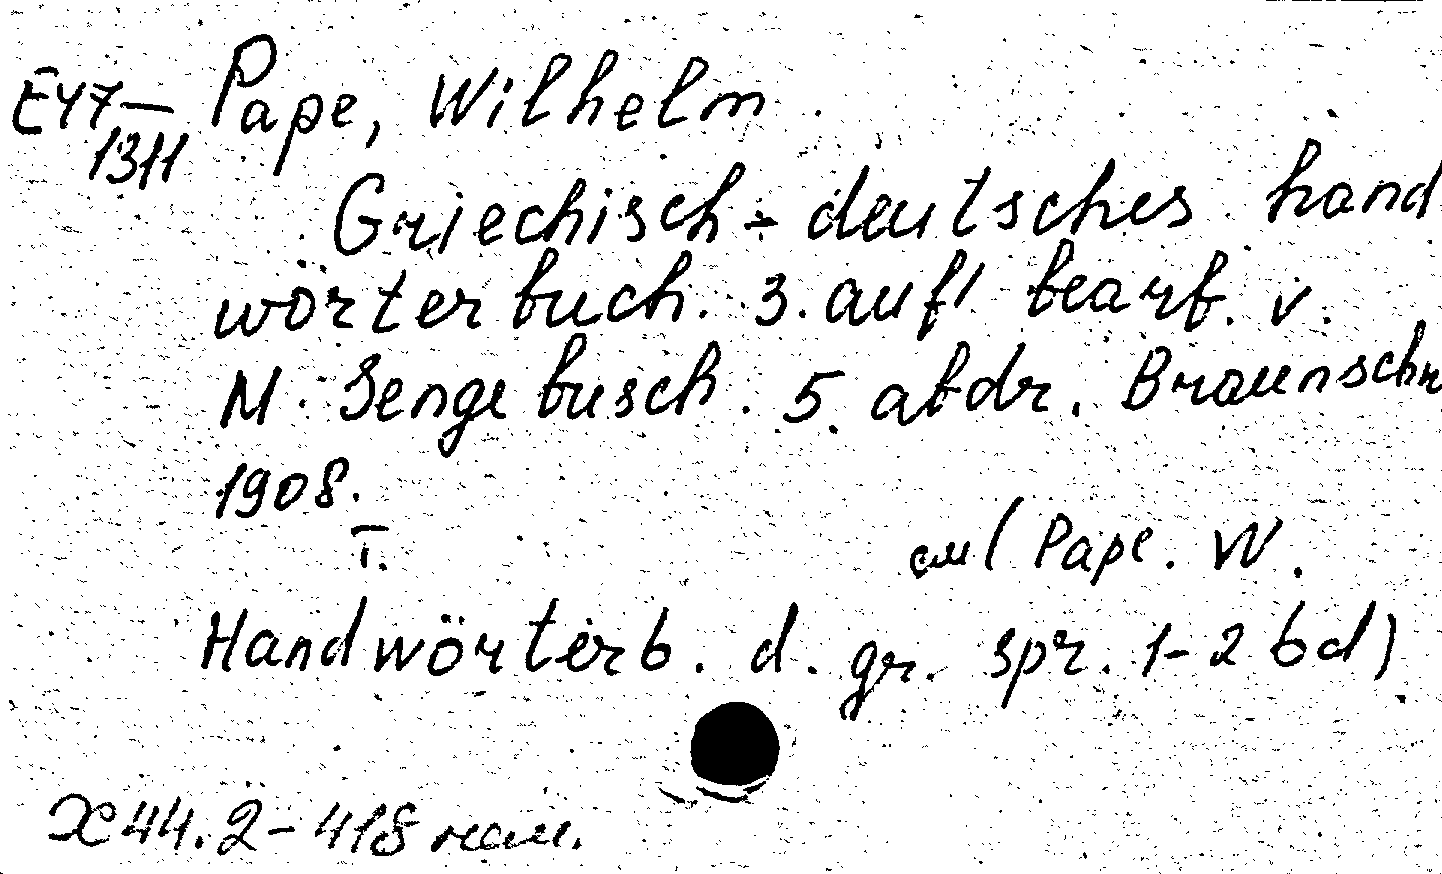 E47—
1311
Pape, Wilhelm.
Griechisch-deutsches hand
wörterbuch. 3. aufl bearb. v.
M. Sengebusch. 5. abdr. Braunschw
1908.
I.
см ( Pape. W.
Handwörterb. d. gr. spr. 1-2 bd)
Ж44.2-418 нем.